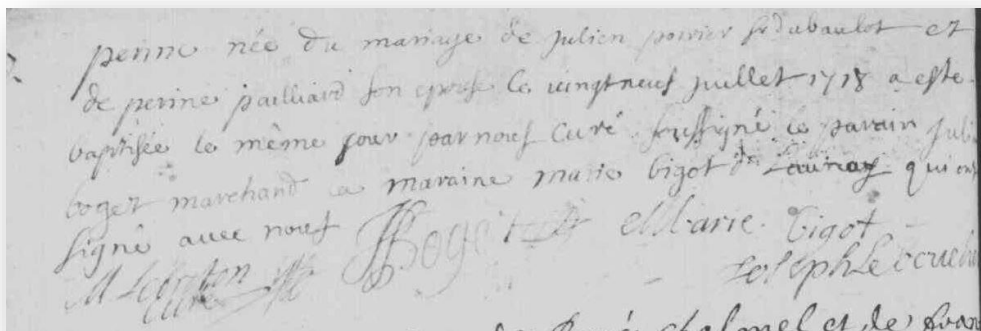 perine née du mariage de Julien poirier sr dubaulot et
de perine pailliard son epouse le vingt neuf juillet 1718 a este
baptisée le même jour par nous Curé soussigné le parain Juli
boger marchand la maraine marie bigot du Launay qui ont
signé avec nous
JBoger Marie Bigot
Curé Joseph Le
chalmel et de